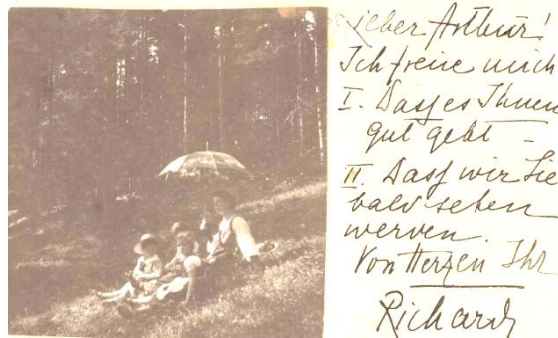 Lieber Arthur!
Ich freue mich
I. Dass es Ihnen
gut geht –
II. Dass wir Sie
bald sehen
werden.
Von Herzen Ihr
Richard